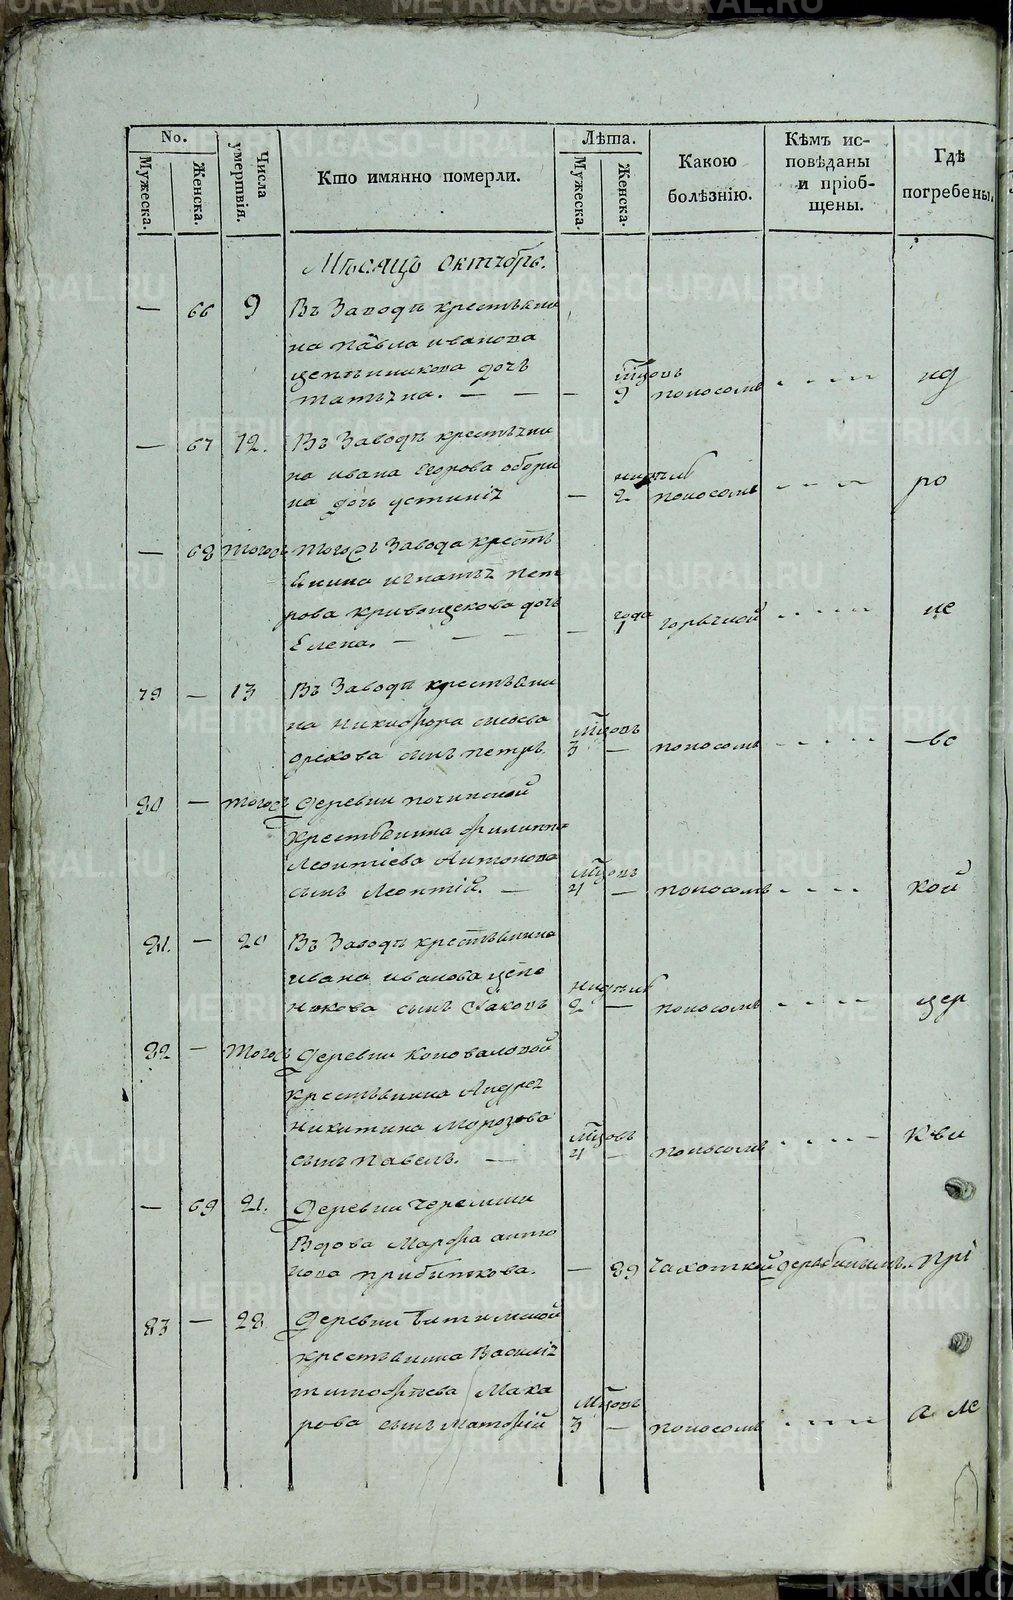 METRIKI.GASO-URAL.RU
No. Мужеска. Женска.
Числа умертвія.
Кто имянно померли.
Лѣта. Мужеска. Женска.
Какою болѣзнію.
Кѣмъ исповѣданы и пріобщены.
Гдѣ погребены.
Мѣсяцъ октябрь.
— 66 9 Въ Заводѣ крестьяни
на Павла иванова
цепѣнникова дочь
татьяна. — — — мцовъ 9 поносомъ - - - - нд
— 67 12. Въ Заводѣ крестьяни
на ивана Егорова обори
на дочь устинія — нидѣль 2 поносомъ - - - - ро
— 68 тогожъ тогожъ Завода кресть
янина игнатья пет
рова кривощекова дочь
Елена. — — — — года 1 горячкой - - - - це
79 — 13 Въ Заводѣ крестьяни
на никифора
орехова сынъ петръ мцовъ 3 — поносомъ - - - - вс
80 — тогожъ Деревни починской
крестьянина филиппа
Леонтіева Антонова
сынъ Леонтій. — мцовъ 4 — поносомъ - - - - кой
81. — 20 Въ Заводѣ крестьянина
ивана иванова цепе
никова сынъ Яковъ нидѣль 2 — поносомъ - - - - цер
82 — тогожъ Деревни коноваловой
крестьянина Андрея
никитина Морозова
сынъ павелъ. — мцовъ 4 — поносомъ - - - - кви
— 69 21. Деревни черемши
Вдова Марфа анто
нова прибыткова. — 89 чахоткой прі
83 — 22 Деревни битимской
крестьянина Василія
тимофѣева Мака
рова сынъ Матфій мцовъ 3 — поносомъ - - - - а ле